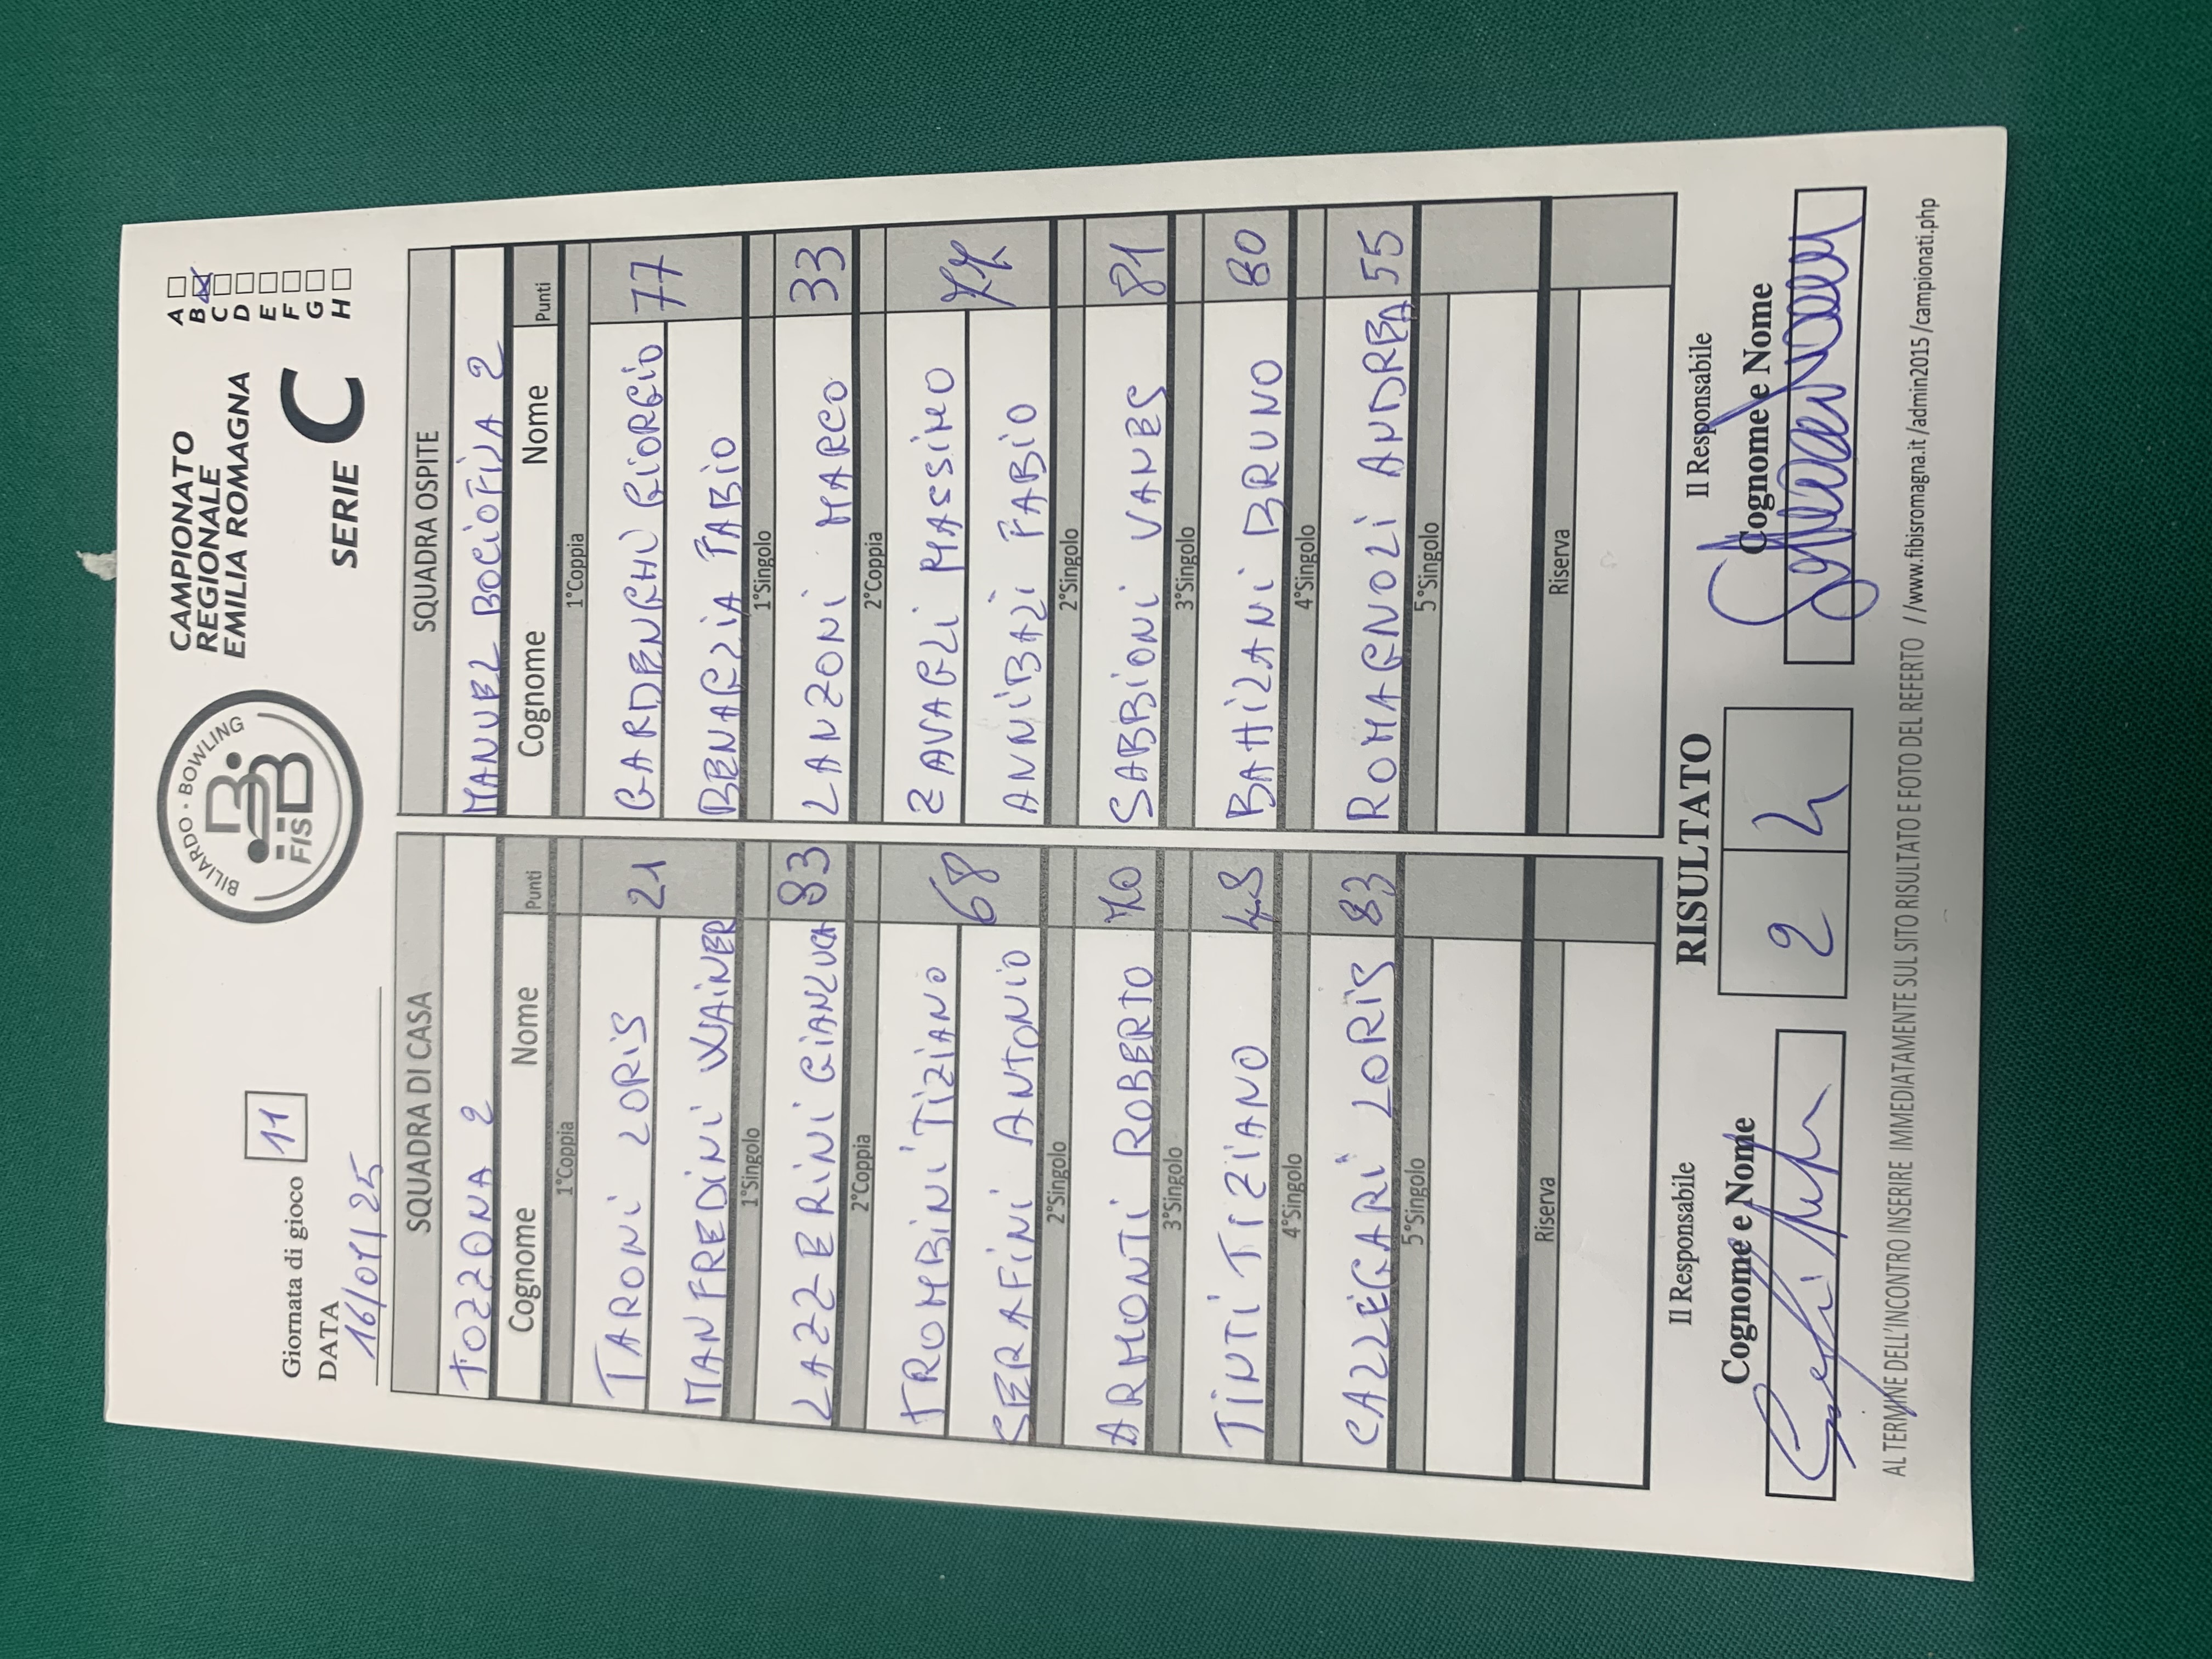 Giornata di gioco 11
DATA
16/01/25
BILIARDO • BOWLING
FISBB
CAMPIONATO
REGIONALE
EMILIA ROMAGNA
SERIE C
A
B
C
D
E
F
G
H
SQUADRA DI CASA
TOZZONA 2
Cognome Nome Punti
1°Coppia
TARONI LORIS 21
MANFREDINI WAINER
1°Singolo
LAZZERINI GIANLUCA 83
2°Coppia
TROMBINI TIZIANO 68
SERAFINI ANTONIO
2°Singolo
ARMONTI ROBERTO 70
3°Singolo
TINTI TIZIANO 43
4°Singolo
CALLEGARI LORIS 83
5°Singolo
Riserva
SQUADRA OSPITE
MANUEL BOCIOFILA 2
Cognome Nome Punti
1°Coppia
GARDENGHI GIORGIO 77
BENAGLIA FABIO
1°Singolo
LANZONI MARCO 33
2°Coppia
ZAVAGLI MASSIMO
ANNIBALI FABIO
2°Singolo
SABBIONI VANES 81
3°Singolo
BAHILANI BRUNO 80
4°Singolo
ROMAGNOLI ANDREA 55
5°Singolo
Riserva
Il Responsabile
Cognome e Nome
RISULTATO
2 4
Il Responsabile
Cognome e Nome
AL TERMINE DELL'INCONTRO INSERIRE IMMEDIATAMENTE SUL SITO RISULTATO E FOTO DEL REFERTO //www.fibisromagna.it /admin2015 /campionati.php